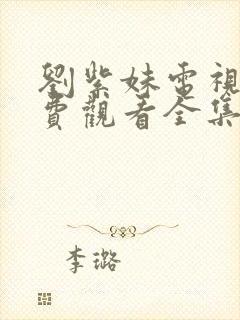 劉紫妹電視
費觀看全集
李璐